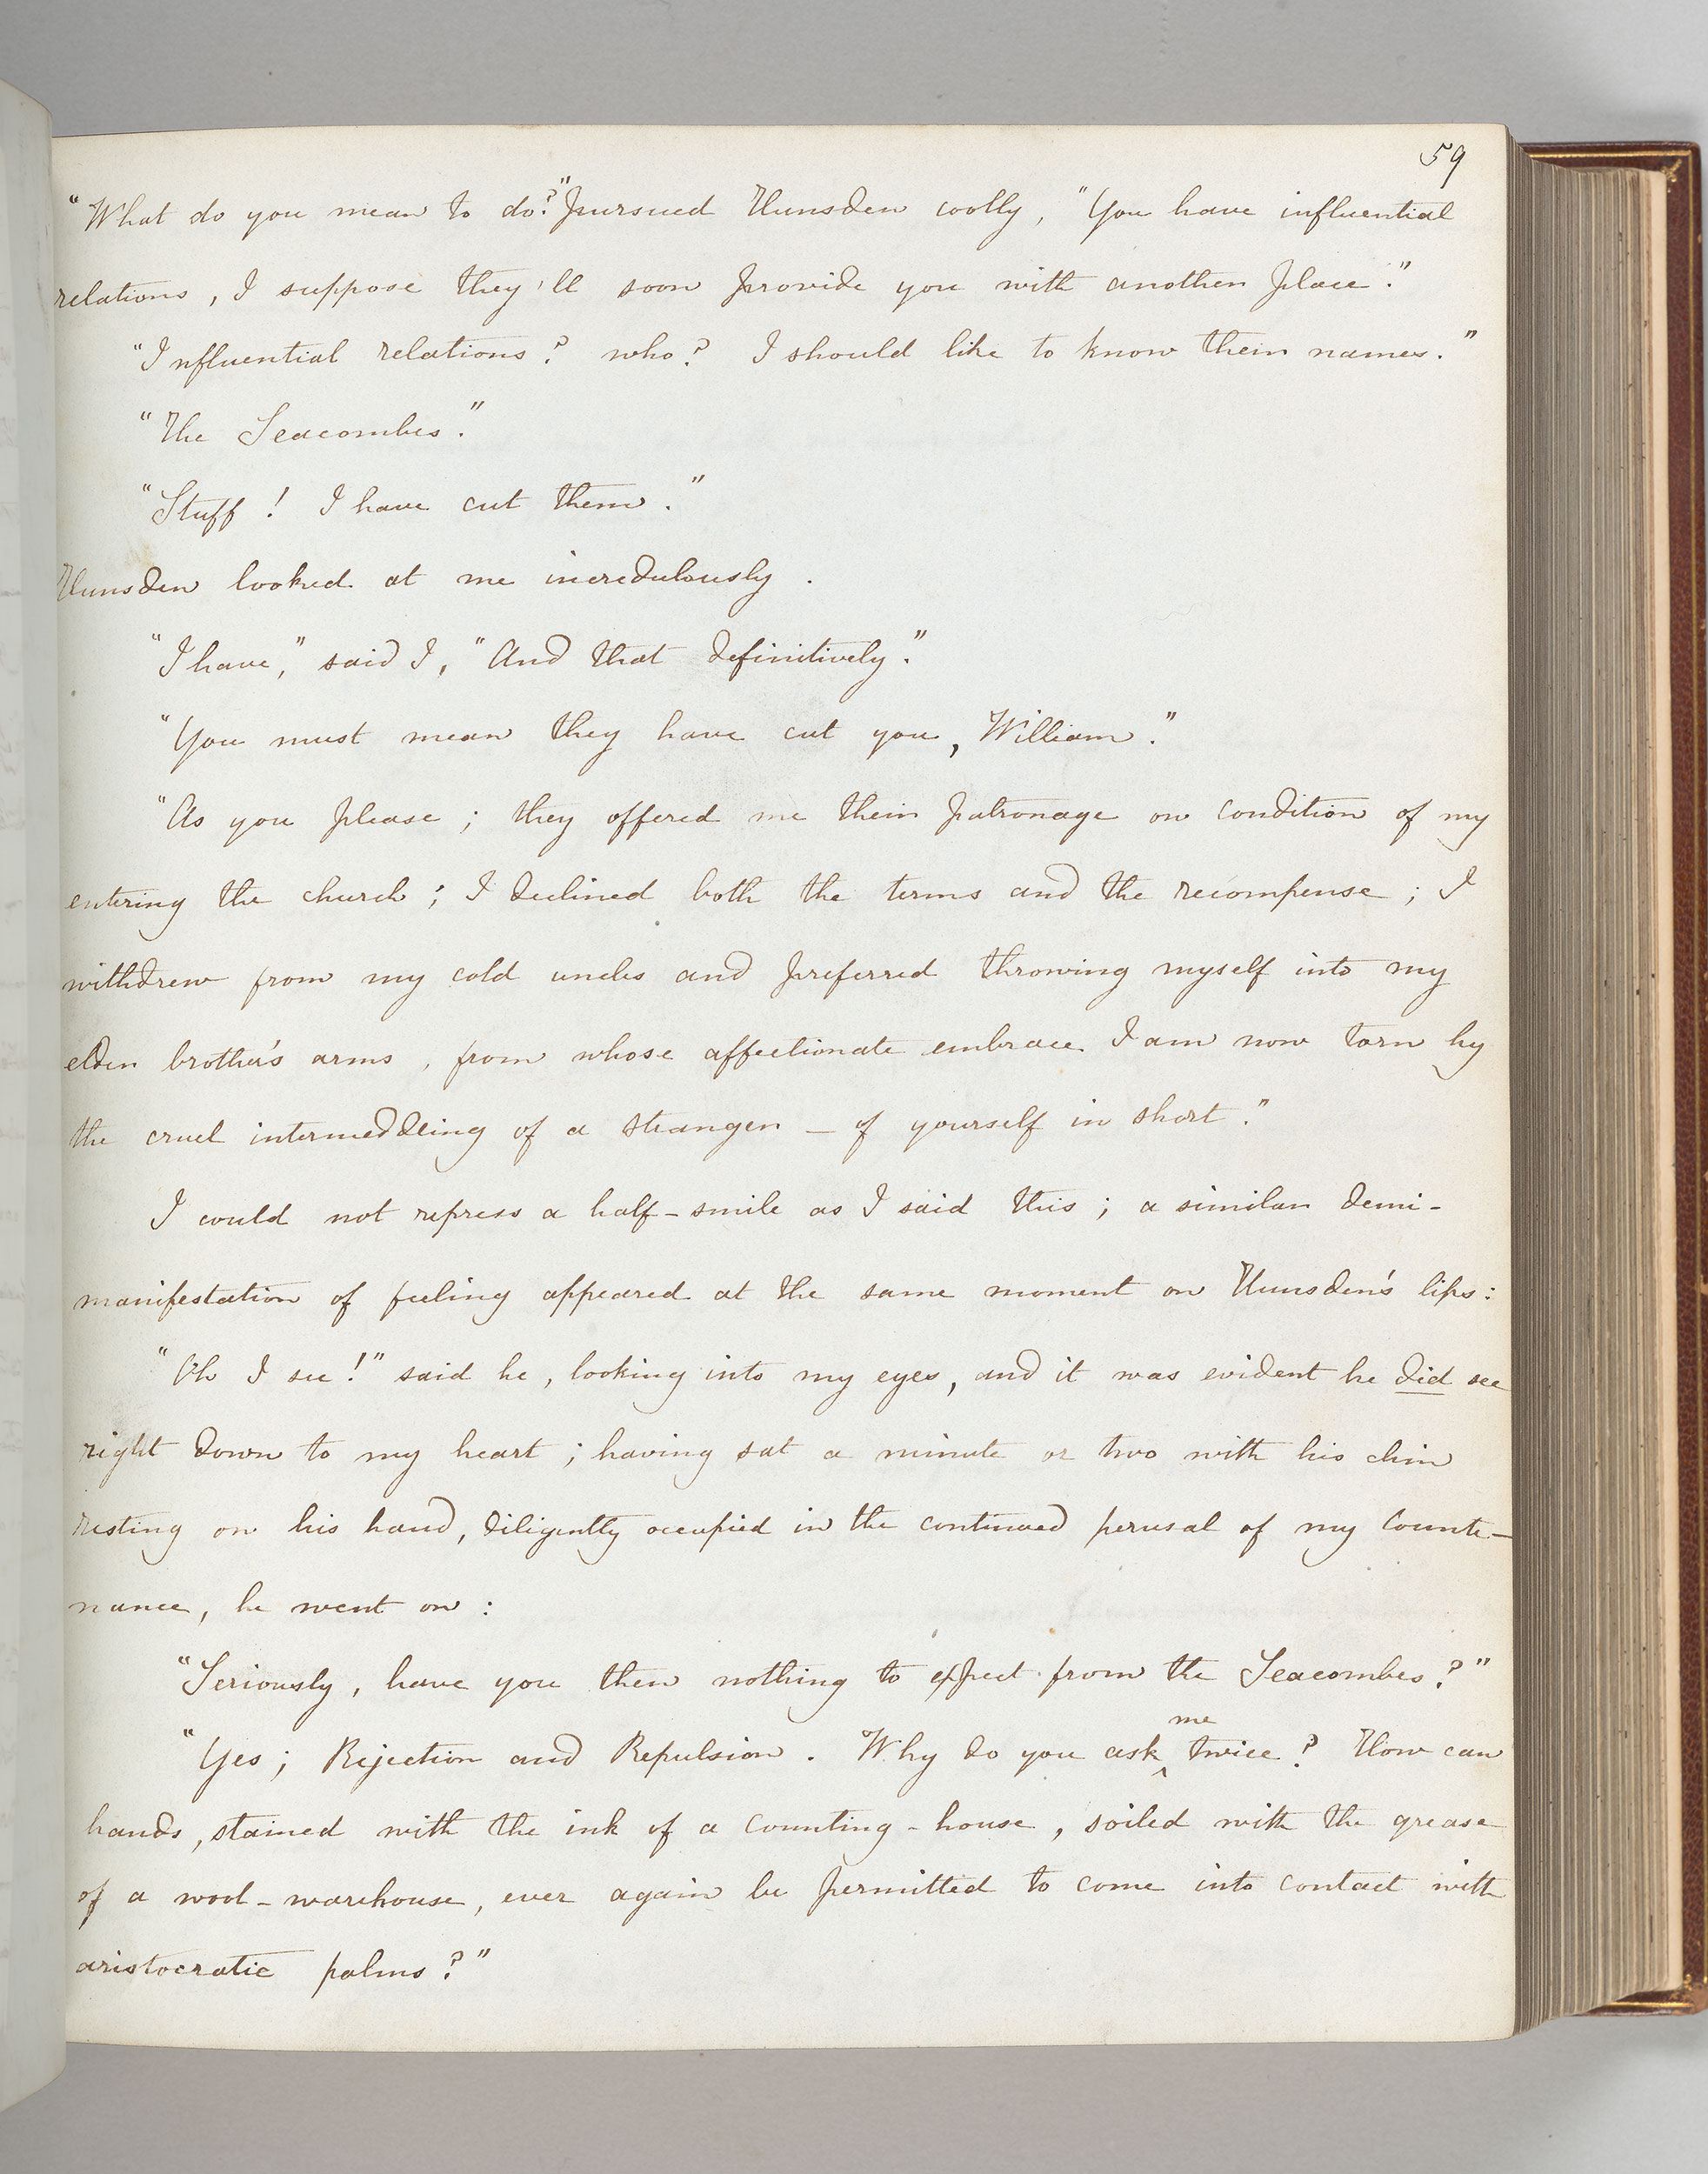 59
"What do you mean to do?" pursued Hunsden coolly, "You have influential
relations, I suppose they'll soon provide you with another place."
"Influential relations? who? I should like to know their names."
"The Seacombes."
"Stuff! I have cut them."
Hunsden looked at me incredulously.
"I have," said I, "And that definitively."
"You must mean they have cut you, William."
"As you please; they offered me their patronage on condition of my
entering the church; I declined both the terms and the recompense; I
withdrew from my cold uncles and preferred throwing myself into my
elder brother's arms, from whose affectionate embrace I am now torn by
the cruel intermeddling of a stranger – of yourself in short."
I could not repress a half-smile as I said this; a similar demi-
manifestation of feeling appeared at the same moment on Hunsden's lips:
"Oh I see!" said he, looking into my eyes, and it was evident he did see
right down to my heart; having sat a minute or two with his chin
resting on his hand, diligently occupied in the continued perusal of my counte-
nance, he went on:
"Seriously, have you then nothing to expect from the Seacombes?"
"Yes; Rejection and Repulsion. Why do you ask me twice? How can
hands, stained with the ink of a counting-house, soiled with the grease
of a wool-warehouse, ever again be permitted to come into contact with
aristocratic palms?"